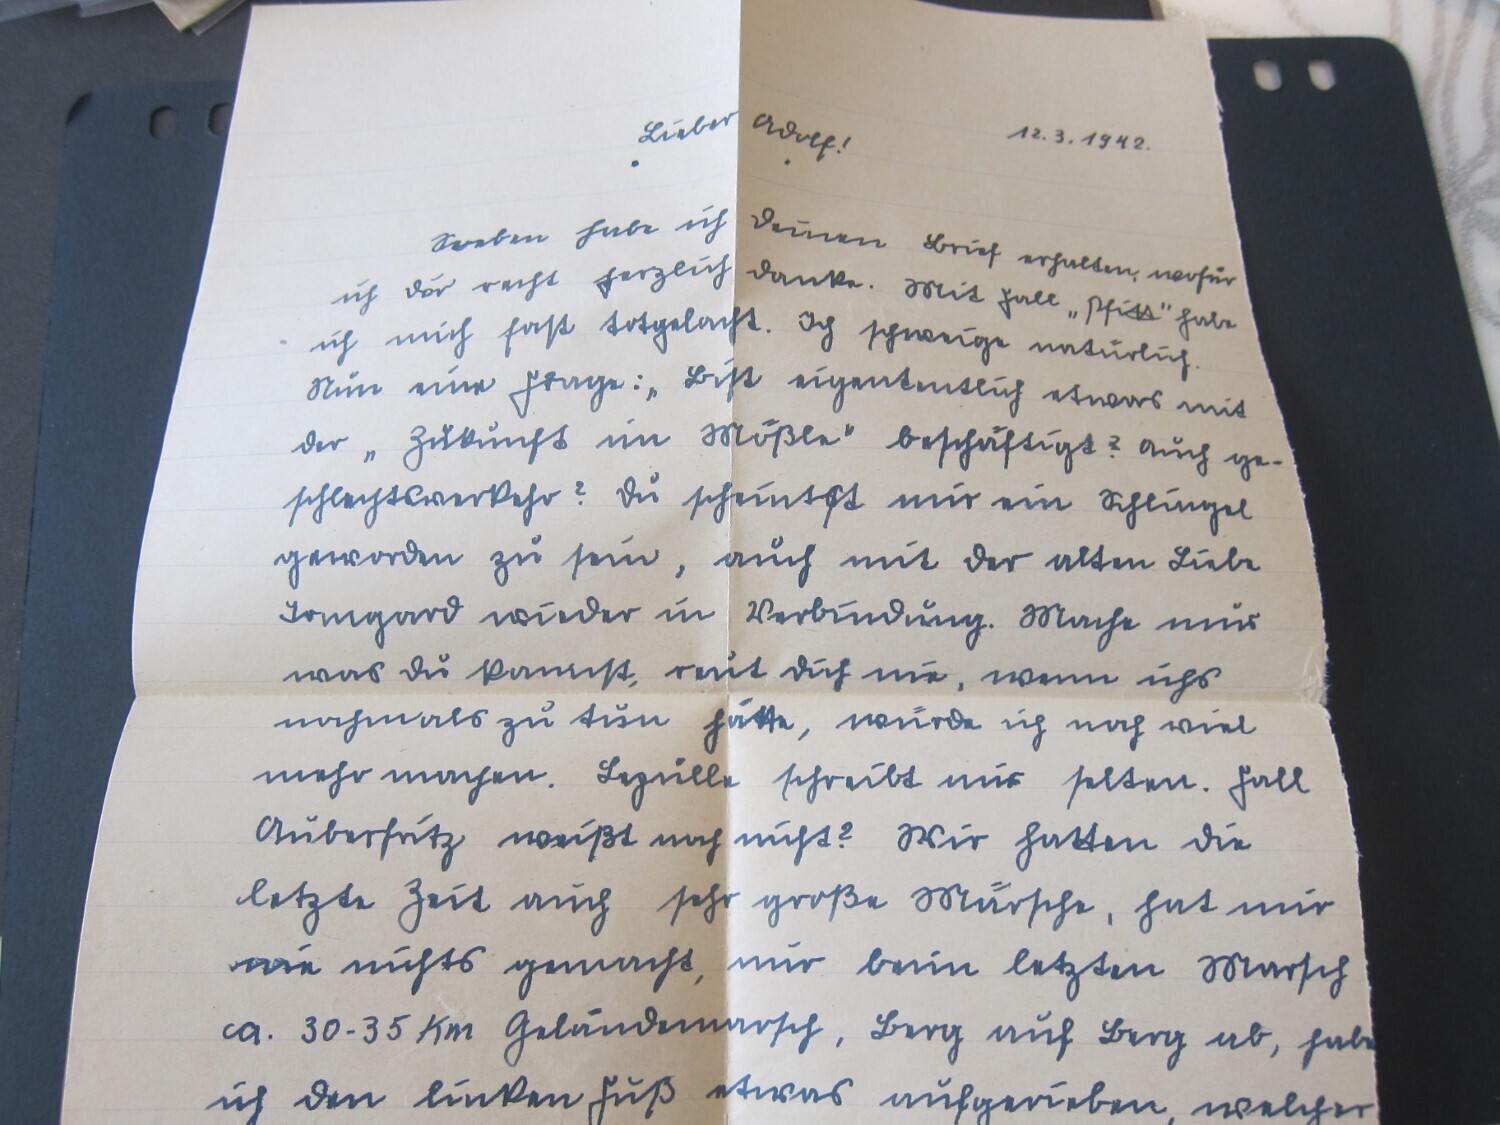 Lieber Adolf! 12.3.1942.
Soeben habe ich Deinen Brief erhalten, wofür
ich dir recht herzlich danke. Mit Fall „ “ habe
ich mich fast totgelacht. Ich schweige natürlich.
Nun eine Frage: „Bist eigententlich etwas mit
der „Zukunft im Mößle“ beschäftigt? Auch ge-
schlechtsverkehr? Du scheintst mir ein Schlingel
geworden zu sein, auch mit der alten Liebe
Irmgard wieder in Verbindung. Mache nur
was du kannst, reut dich nie, wenn ichs
nochmals zu tun hätte, würde ich noch viel
mehr machen. schreibt mir selten. Fall
Auberfritz weißt noch nicht? Wir hatten die
letzte Zeit auch sehr große Märsche, hat mir
nie nichts gemacht, nur beim letzten Marsch
ca. 30-35 Km Geländemarsch, Berg auf Berg ab, habe
ich den linken Fuß etwas aufgerieben, welcher